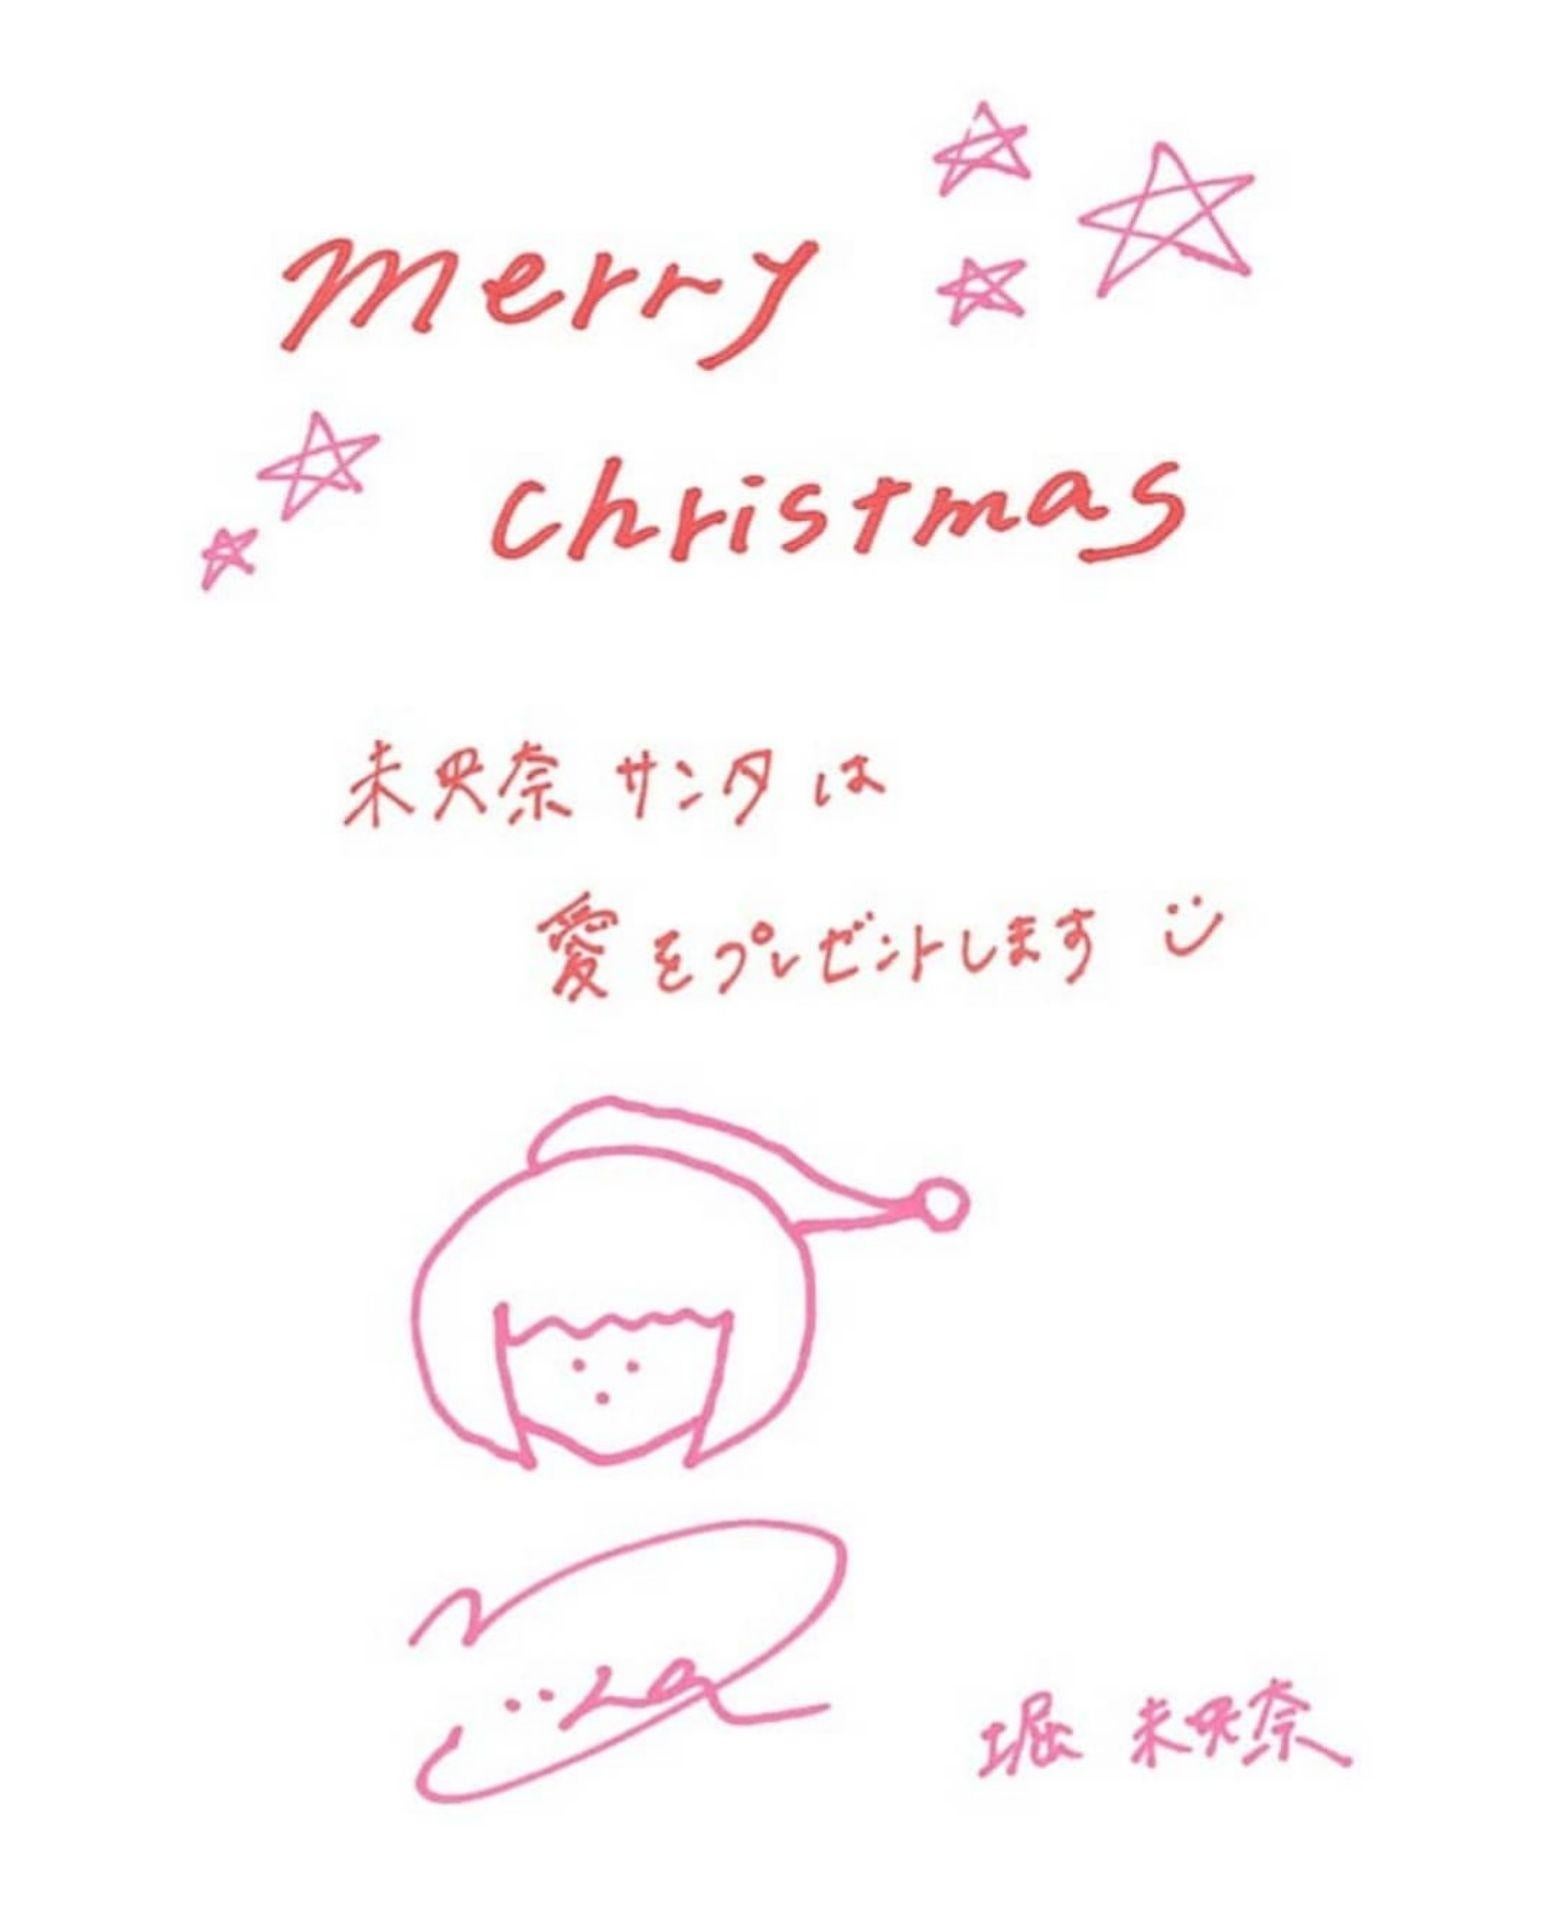 merry
christmas
未央奈 サンタ は
愛をプレゼントします
堀 未央奈